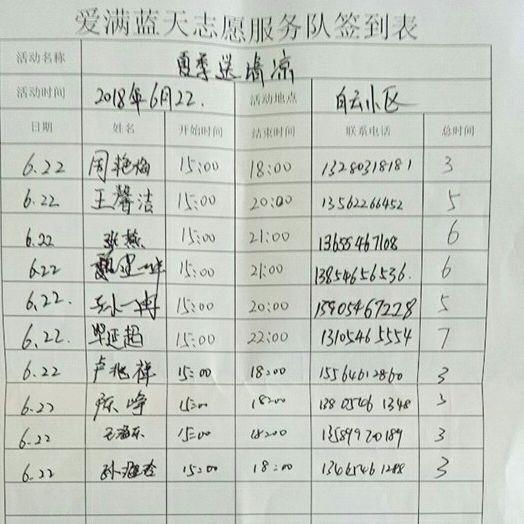 爱满蓝天志愿服务队签到表
活动名称 夏季送清凉
活动时间 2018年6月22. 活动地点 白云小区
日期 姓名 开始时间 结束时间 联系电话 总时间
6.22 周艳梅 15:00 18:00 13280318181 3
6.22 王馨洁 15:00 20:00 13562266452 5
6.22 张燕 15:00 21:00 13655467108 6
6.22 15:00 21:00 13854656536. 6
6.22. 15:00 20:00 13905467228 5
6.22. 毕延超 15:00 22:00 13105465554 7
6.22 卢兆祥 15:00 18:00 15564612860 3
6.22 陈峰 15:00 18:00 13805461348 3
6.22 15:00 18:00 13589970189 3
6.22 15:00 18:00 13465461288 3